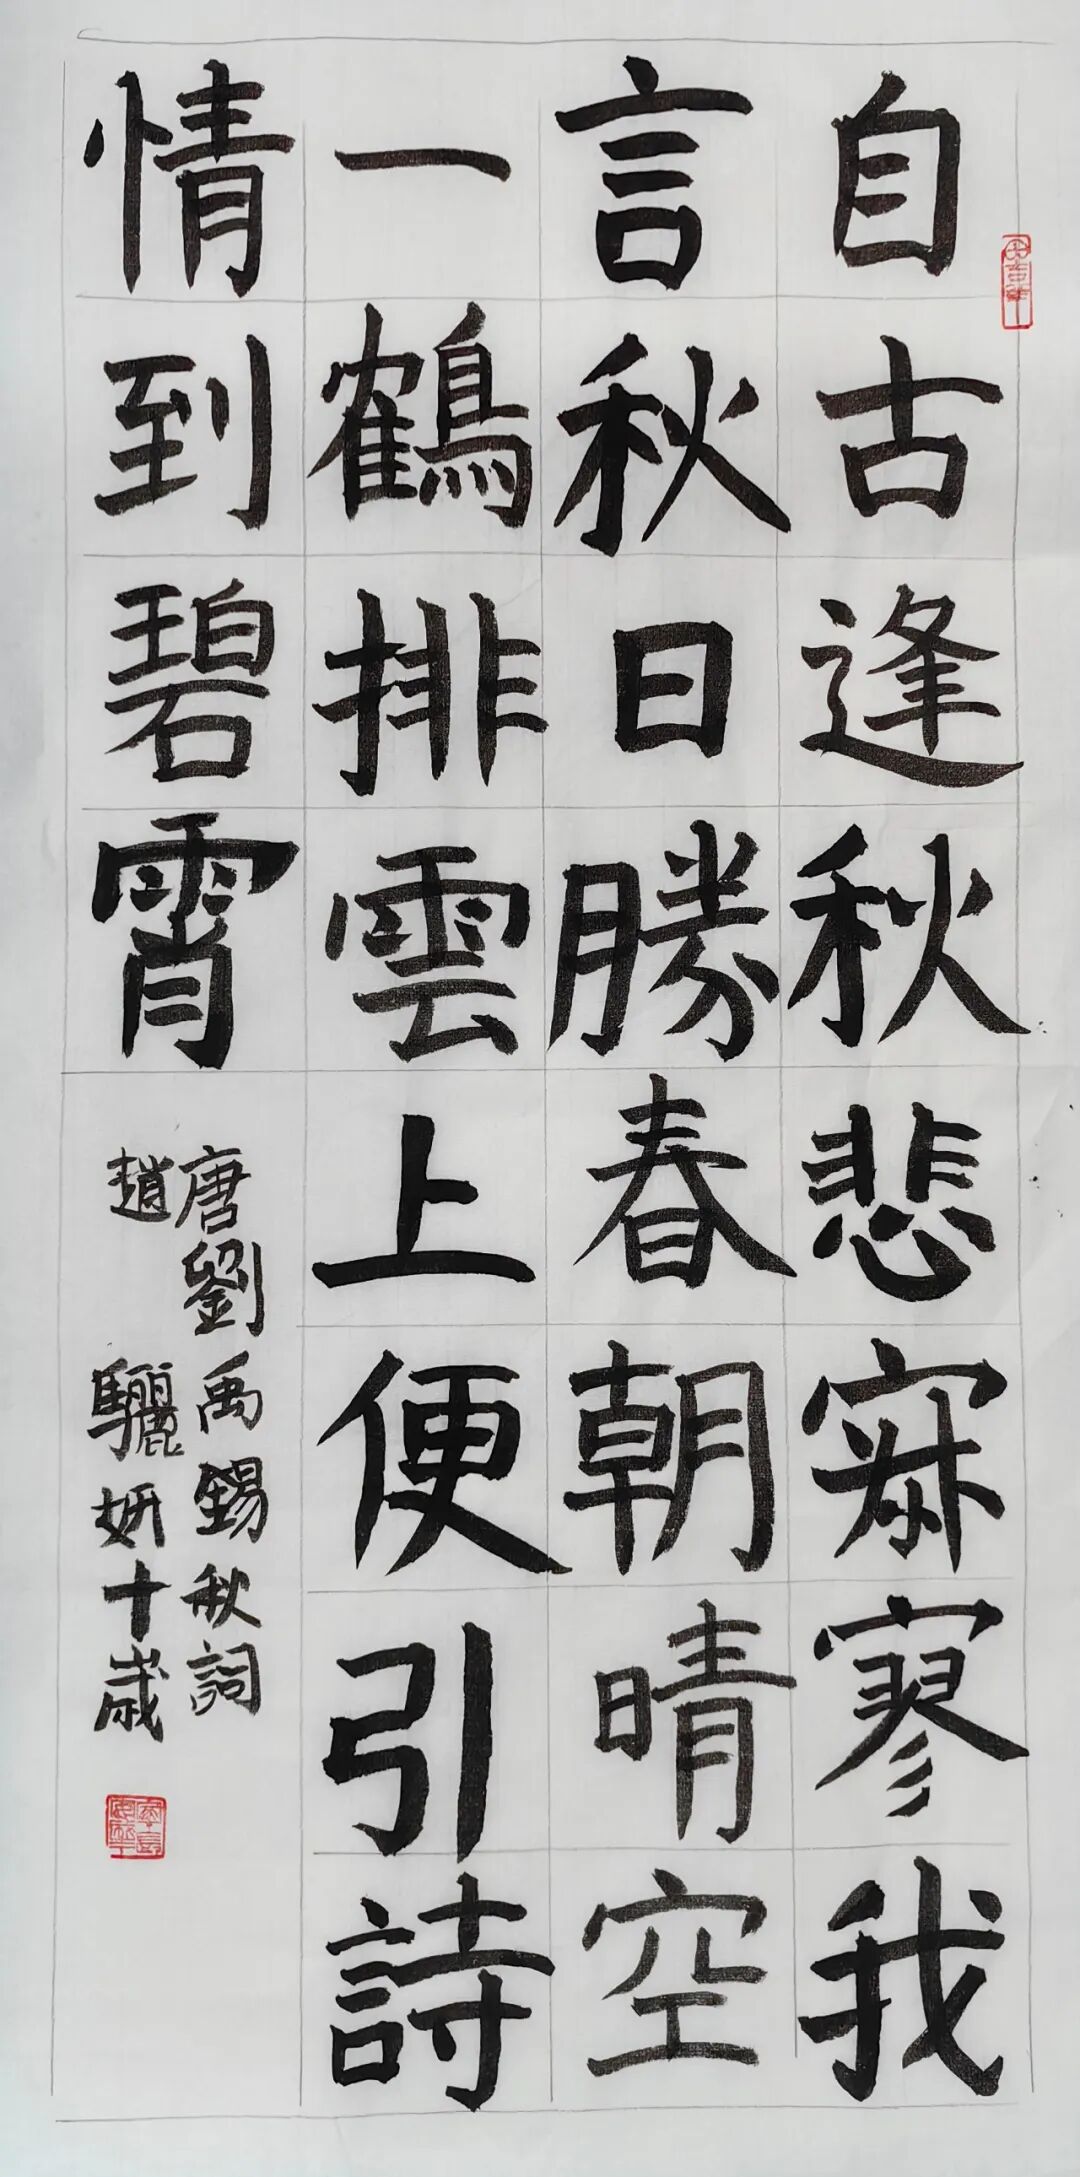 自古逢秋悲寂寥我
言秋日勝春朝晴空
一鶴排雲上便引詩
情到碧霄
唐劉禹錫秋詞
趙驪妍十歲